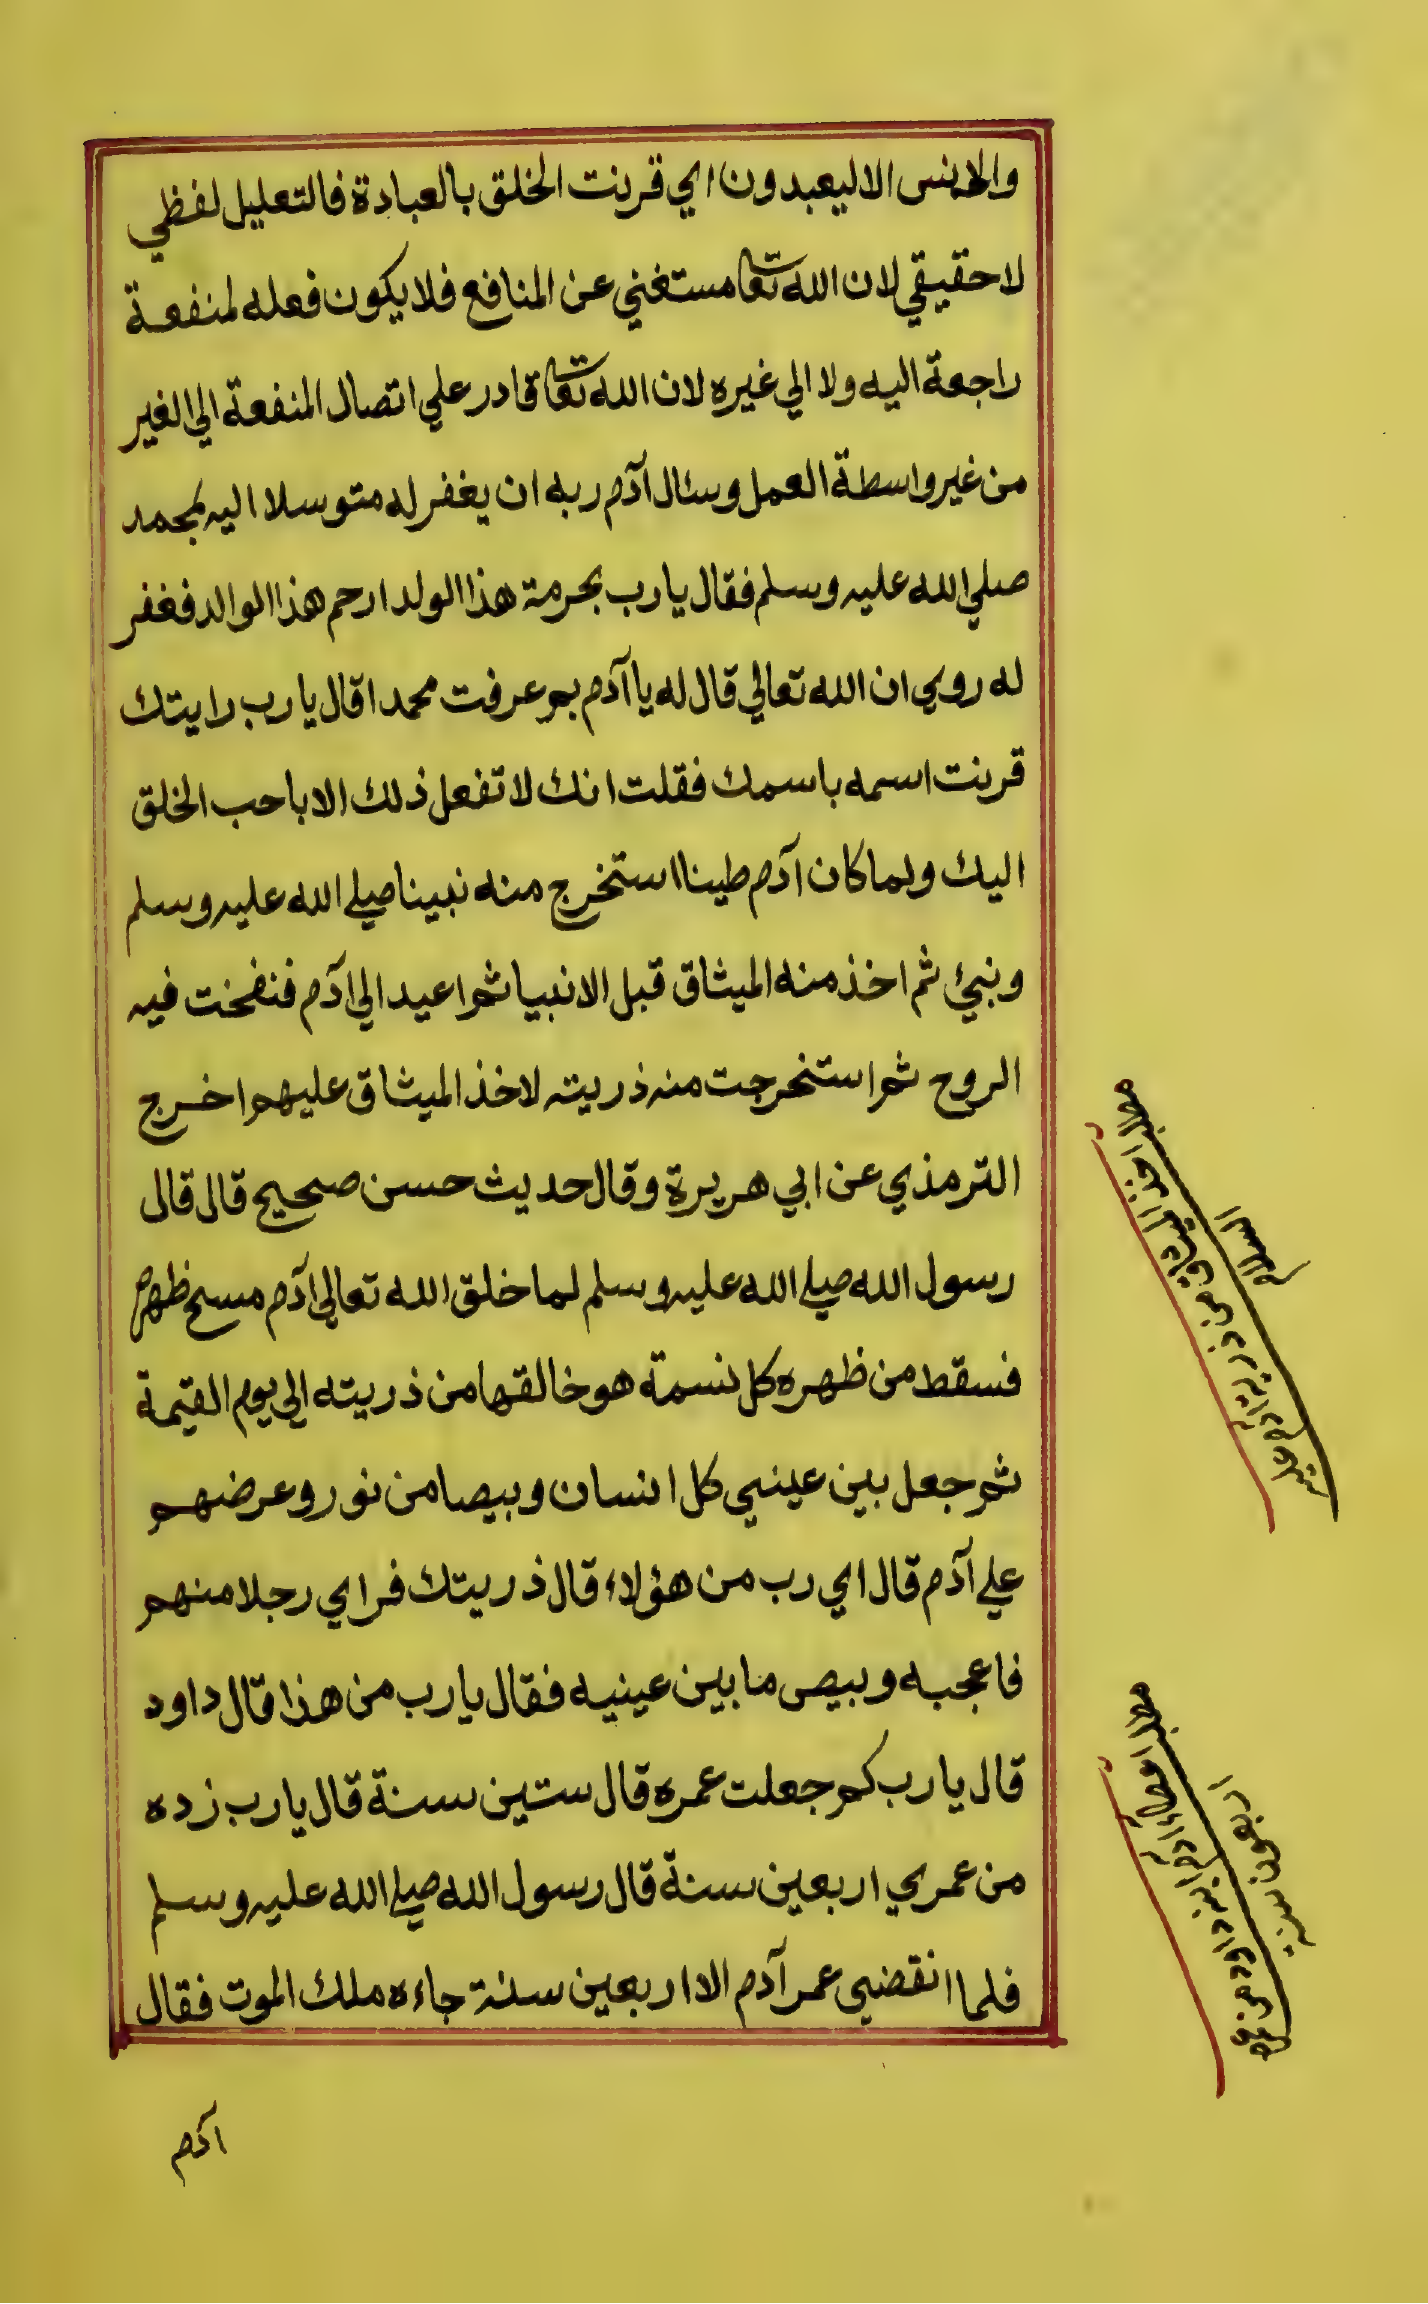 والانس الا ليعبدون اي قرنت الخلق بالعبادة فالتعليل لفظي
لا حقيقي لان الله تعا مستغني عن المنافع فلا يكون فعله لمنفعة
راجعة اليه ولا الي غيره لان الله تعا قادر علي اتصال المنفعة الي الغير
من غير واسطة العمل وسئال آدم ربه ان يغفر له متوسلا اليه بمحمد
صلي الله عليه وسلم فقال يا رب بحرمة هذا الولد ارحم هذا الوالد فغفر
له روي ان الله تعالي قال له يا آدم بم عرفت محمدا قال يا رب رايتك
قرنت اسمه باسمك فقلت انك لا تفعل ذلك الا باحب الخلق
اليك ولما كان آدم طينا استخرج منه نبينا صلي الله عليه وسلم
ونبئ ثم اخذ منه الميثاق قبل الانبيا ثم اعيد الي آدم فنفخت فيه
الروح ثم استخرجت منه ذريته لاخذ الميثاق عليهم اخرج
الترمذي عن ابي هريرة وقال حديث حسن صحيح قال قال
رسول الله صلي الله عليه وسلم لما خلق الله تعالي آدم مسح ظهره
فسقط من ظهره كل نسمة هو خالقها من ذريته الي يوم القيمة
ثم جعل بين عيني كل انسان وبيصا من نور وعرضهم
علي آدم قال اي رب من هؤلاء قال ذريتك فراي رجلا منهم
فاعجبه وبيص ما بين عينيه فقال يا رب من هذا قال داود
قال يا رب كم جعلت عمره قال ستين سنة قال يا رب زده
من عمري اربعين سنة قال رسول الله صلي الله عليه وسلم
فلما انقضي عمر آدم الا اربعين سنة جاءه ملك الموت فقال
آدم
مطلب اخذ الميثاق من ذرية آدم عليه
السلام
مطلب اعطاء آدم ابنه داود من عمره
اربعون سنة